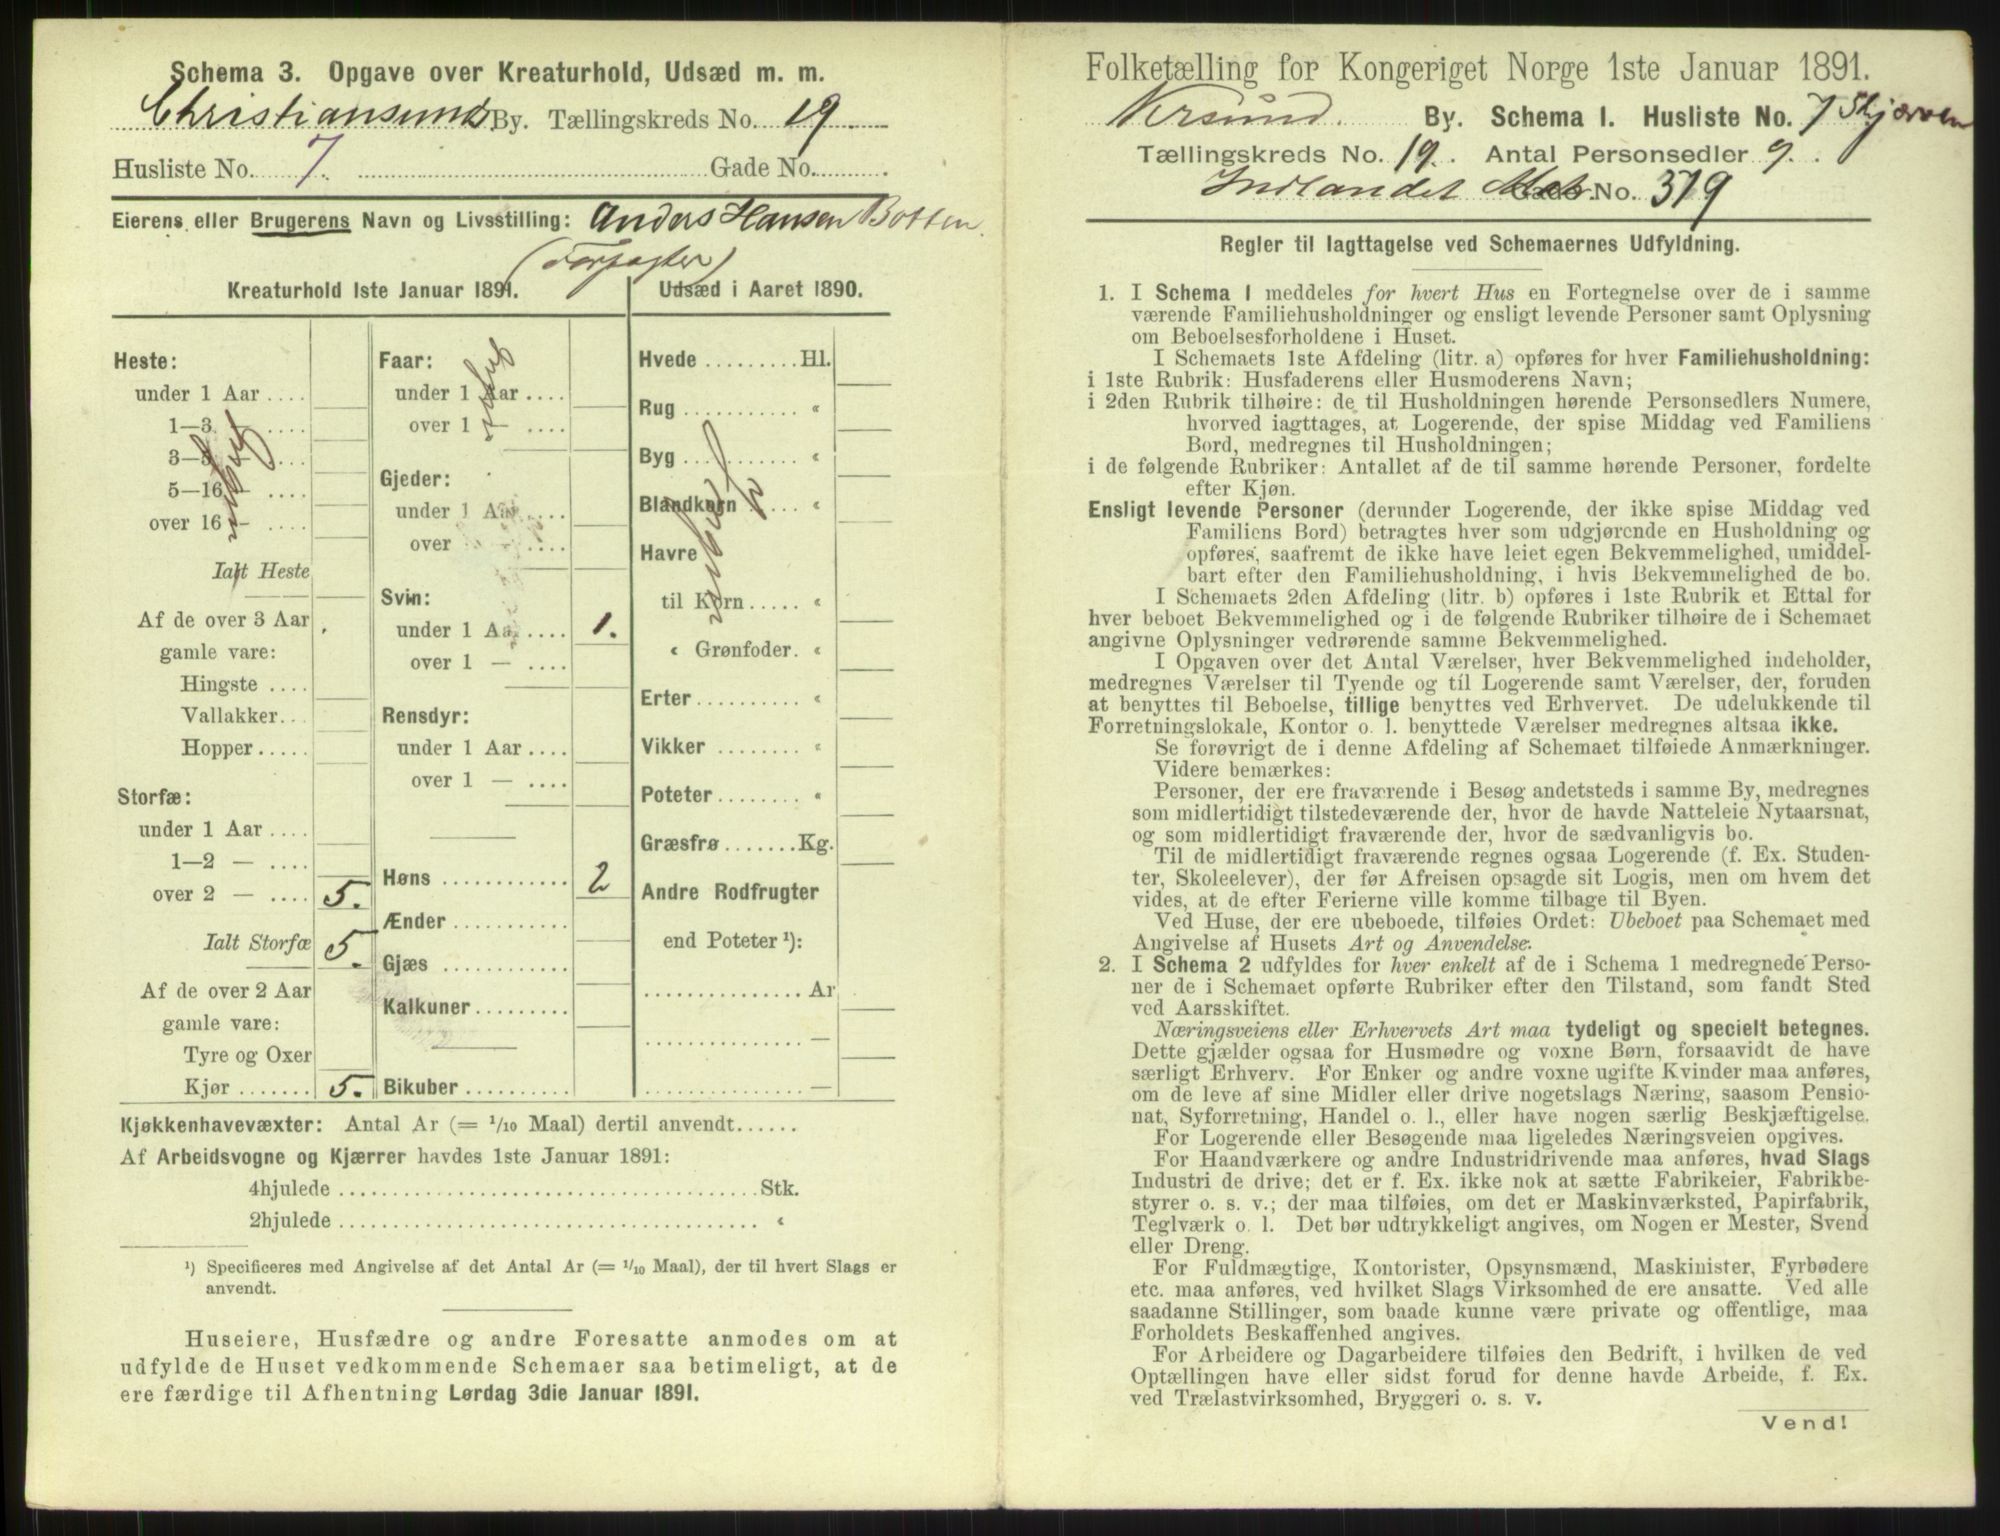 Schema 3. Opgave over Kreaturhold, Udsæd m. m.
Christiansund By. Tællingskreds No. 19.
Husliste No. 7. Gade No.
Eierens eller Brugerens Navn og Livsstilling: Anders Hansen Botten.
(Forpagter)
Kreaturhold 1ste Januar 1891.
Heste:
under 1 Aar
1—3 —
3—5 —
5—16 —
over 16 —
Ialt Heste
Af de over 3 Aar
gamle vare:
Hingste
Vallakker
Hopper
Storfæ:
under 1 Aar
1—2 —
over 2 — 5.
Ialt Storfæ 5.
Af de over 2 Aar
gamle vare:
Tyre og Oxer
Kjør 5.
Faar:
under 1 Aar
over 1 —
Gjeder:
under 1 Aar
over 1 —
Svin:
under 1 Aar 1.
over 1 —
Rensdyr:
under 1 Aar
over 1 —
Høns 2
Ænder
Gjæs
Kalkuner
Bikuber
Udsæd i Aaret 1890.
Hvede Hl.
Rug «
Byg «
Blandkorn «
Havre
til Korn «
« Grønfoder. «
Erter «
Vikker «
Poteter «
Græsfrø Kg.
Andre Rodfrugter
end Poteter ¹):
Ar
—
—
Kjøkkenhavevæxter: Antal Ar (= 1/10 Maal) dertil anvendt
Af Arbeidsvogne og Kjærrer havdes 1ste Januar 1891:
4hjulede Stk.
2hjulede «
¹) Specificeres med Angivelse af det Antal Ar (= 1/10 Maal), der til hvert Slags er
anvendt.
Huseiere, Husfædre og andre Foresatte anmodes om at
udfylde de Huset vedkommende Schemaer saa betimeligt, at de
ere færdige til Afhentning Lørdag 3die Januar 1891.
Folketælling for Kongeriget Norge 1ste Januar 1891.
Krsund. By. Schema I. Husliste No. 7 Skjærven
Tællingskreds No. 19. Antal Personsedler 9.
Indlandet Matr. No. 379
Regler til Iagttagelse ved Schemaernes Udfyldning.
1. I Schema 1 meddeles for hvert Hus en Fortegnelse over de i samme
værende Familiehusholdninger og ensligt levende Personer samt Oplysning
om Beboelsesforholdene i Huset.
I Schemaets 1ste Afdeling (litr. a) opføres for hver Familiehusholdning:
i 1ste Rubrik: Husfaderens eller Husmoderens Navn;
i 2den Rubrik tilhøire: de til Husholdningen hørende Personsedlers Numere,
hvorved iagttages, at Logerende, der spise Middag ved Familiens
Bord, medregnes til Husholdningen;
i de følgende Rubriker: Antallet af de til samme hørende Personer, fordelte
efter Kjøn.
Ensligt levende Personer (derunder Logerende, der ikke spise Middag ved
Familiens Bord) betragtes hver som udgjørende en Husholdning og
opføres, saafremt de ikke have leiet egen Bekvemmelighed, umiddel-
bart efter den Familiehusholdning, i hvis Bekvemmelighed de bo.
I Schemaets 2den Afdeling (litr. b) opføres i 1ste Rubrik et Ettal for
hver beboet Bekvemmelighed og i de følgende Rubriker tilhøire de i Schemaet
angivne Oplysninger vedrørende samme Bekvemmelighed.
I Opgaven over det Antal Værelser, hver Bekvemmelighed indeholder,
medregnes Værelser til Tyende og til Logerende samt Værelser, der, foruden
at benyttes til Beboelse, tillige benyttes ved Erhvervet. De udelukkende til
Forretningslokale, Kontor o. l. benyttede Værelser medregnes altsaa ikke.
Se forøvrigt de i denne Afdeling af Schemaet tilføiede Anmærkninger.
Videre bemærkes:
Personer, der ere fraværende i Besøg andetsteds i samme By, medregnes
som midlertidigt tilstedeværende der, hvor de havde Natteleie Nytaarsnat,
og som midlertidigt fraværende der, hvor de sædvanligvis bo.
Til de midlertidigt fraværende regnes ogsaa Logerende (f. Ex. Studen-
ter, Skoleelever), der før Afreisen opsagde sit Logis, men om hvem det
vides, at de efter Ferierne ville komme tilbage til Byen.
Ved Huse, der ere ubeboede, tilføies Ordet: Ubeboet paa Schemaet med
Angivelse af Husets Art og Anvendelse.
2. I Schema 2 udfyldes for hver enkelt af de i Schema 1 medregnede Perso-
ner de i Schemaet opførte Rubriker efter den Tilstand, som fandt Sted
ved Aarsskiftet.
Næringsveiens eller Erhvervets Art maa tydeligt og specielt betegnes.
Dette gjælder ogsaa for Husmødre og voxne Børn, forsaavidt de have
særligt Erhverv. For Enker og andre voxne ugifte Kvinder maa anføres,
om de leve af sine Midler eller drive nogetslags Næring, saasom Pensio-
nat, Syforretning, Handel o. l., eller have nogen særlig Beskjæftigelse.
For Logerende eller Besøgende maa ligeledes Næringsveien opgives.
For Haandværkere og andre Industridrivende maa anføres, hvad Slags
Industri de drive; det er f. Ex. ikke nok at sætte Fabrikeier, Fabrikbe-
styrer o. s. v.; der maa tilføies, om det er Maskinværksted, Papirfabrik,
Teglværk o. l. Det bør udtrykkeligt angives, om Nogen er Mester, Svend
eller Dreng.
For Fuldmægtige, Kontorister, Opsynsmænd, Maskinister, Fyrbødere
etc. maa anføres, ved hvilket Slags Virksomhed de ere ansatte. Ved alle
saadanne Stillinger, som baade kunne være private og offentlige, maa
Forholdets Beskaffenhed angives.
For Arbeidere og Dagarbeidere tilføies den Bedrift, i hvilken de ved
Optællingen have eller sidst forud for denne havde Arbeide, f. Ex.
ved Trælastvirksomhed, Bryggeri o. s. v.
Vend!